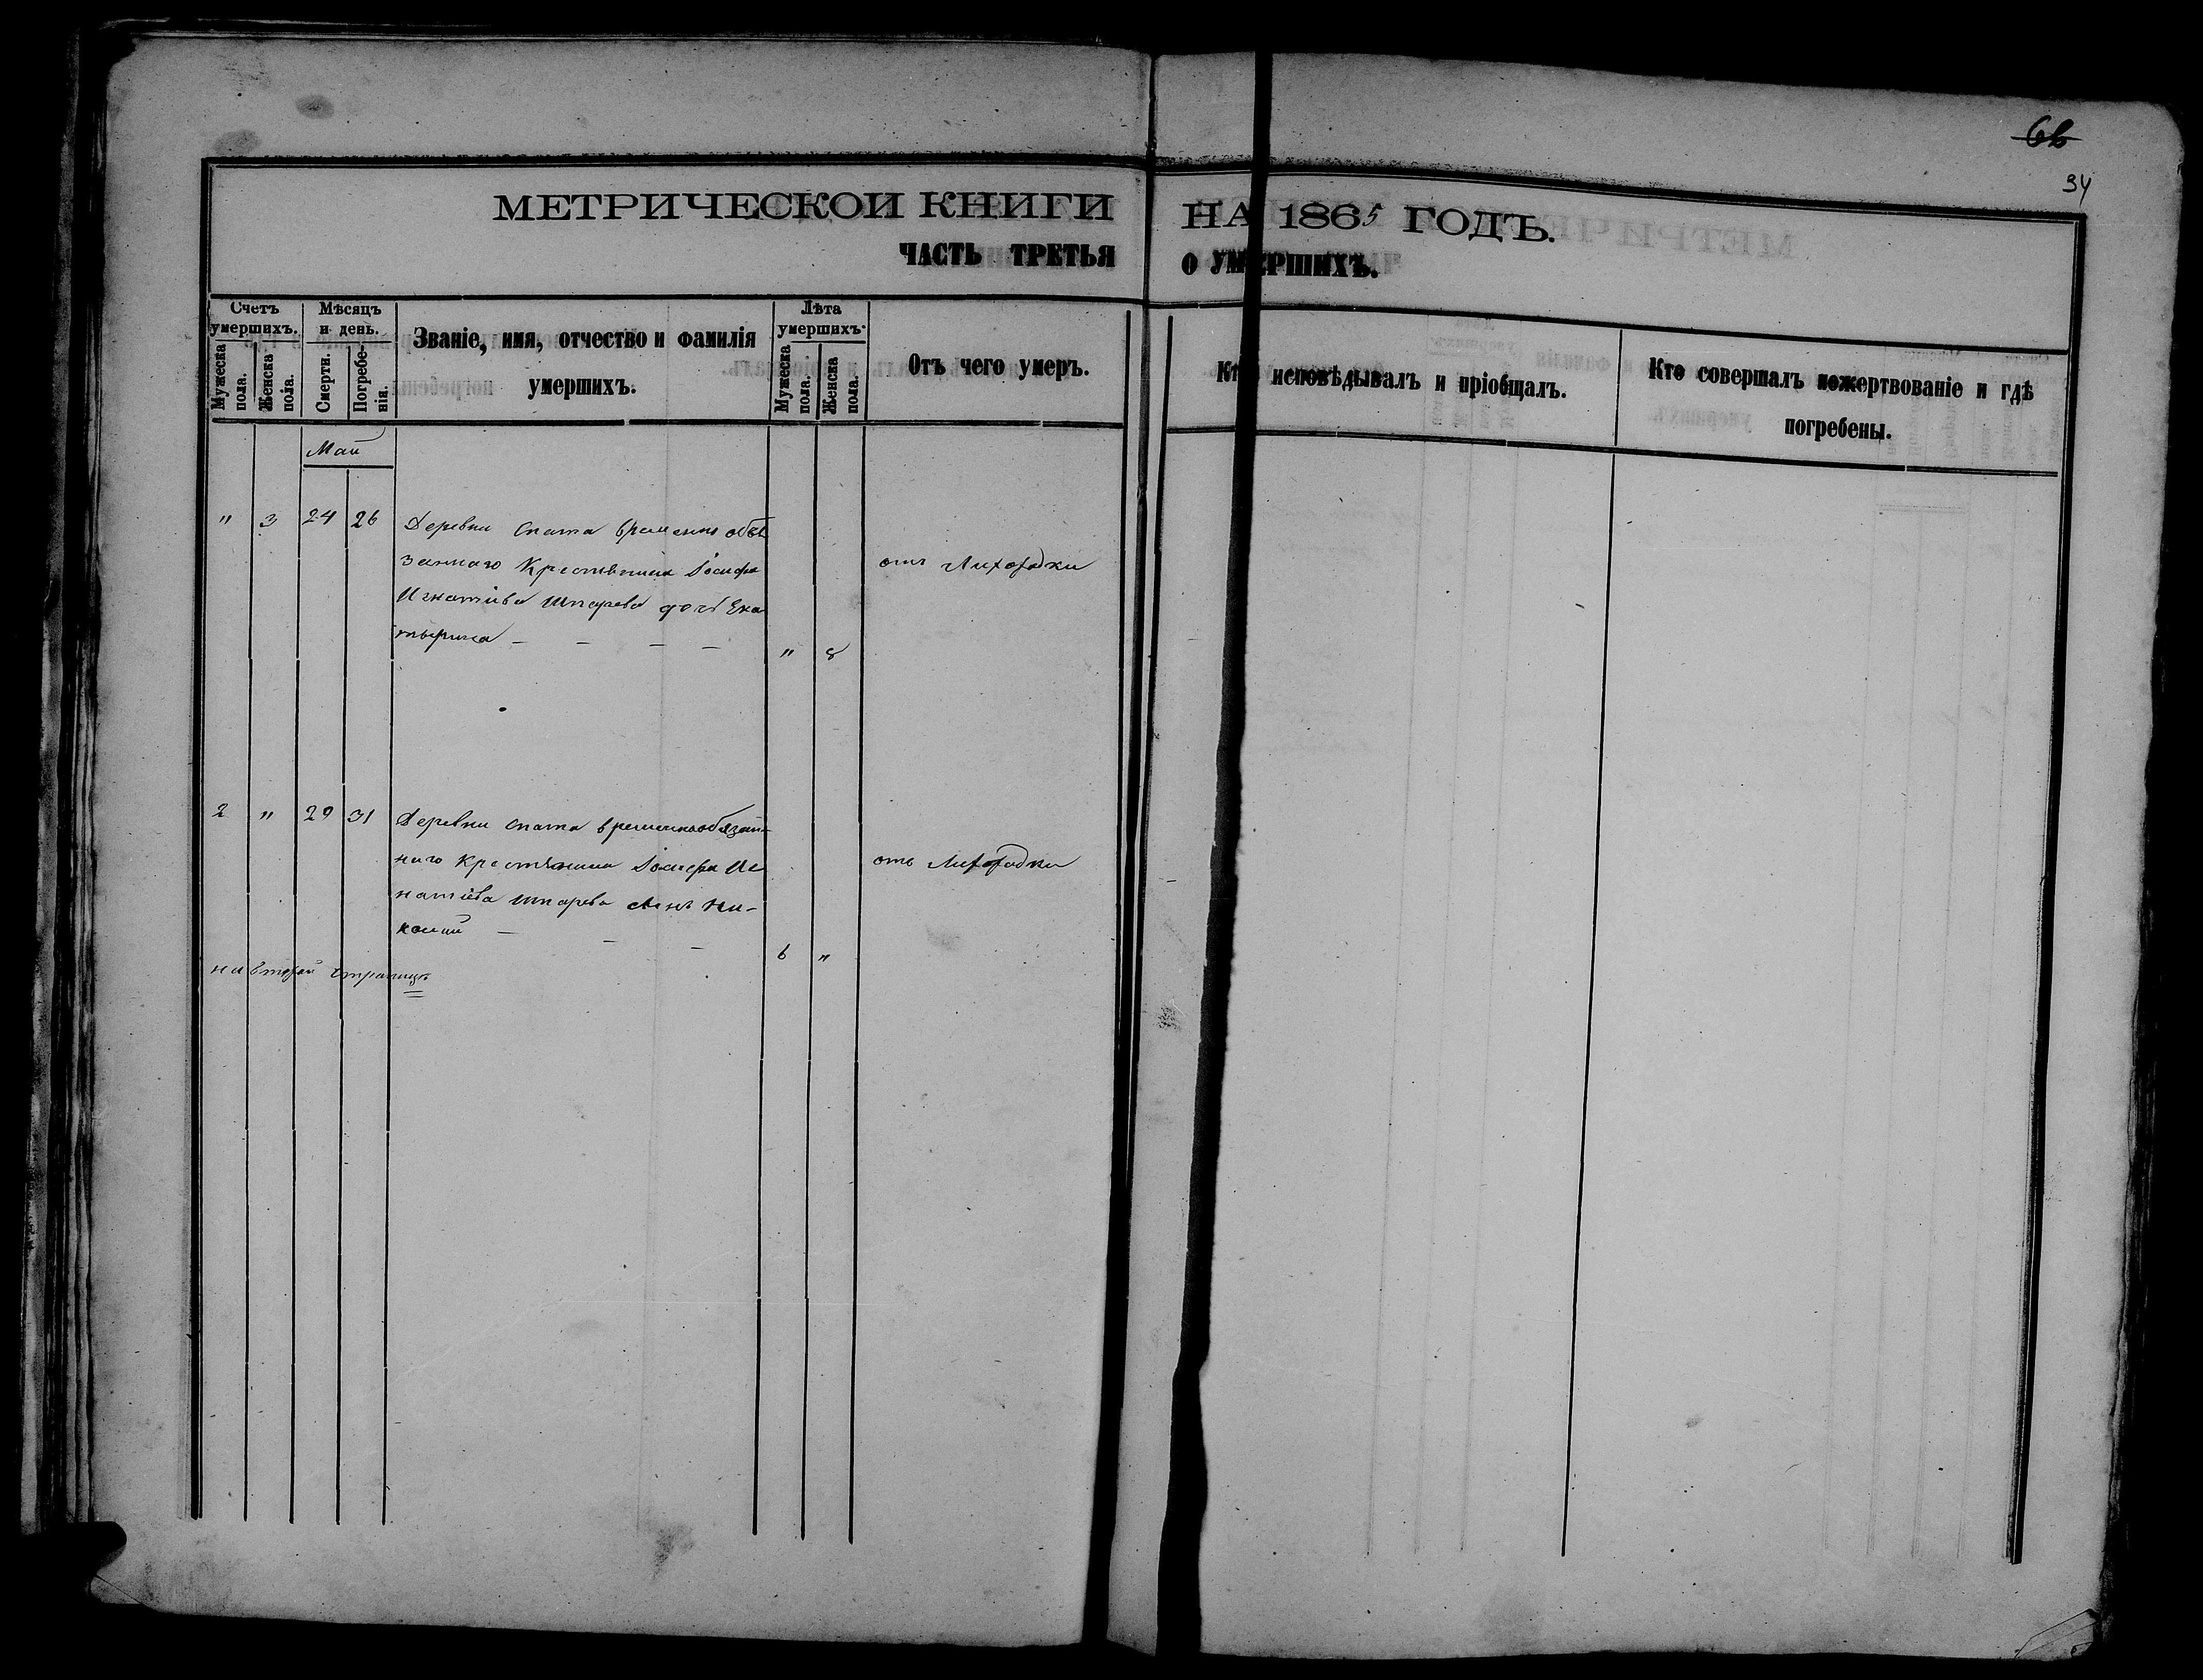 66
34
МЕТРИЧЕСКОЙ КНИГИ НА 1865 ГОДЪ.
ЧАСТЬ ТРЕТЬЯ О УМЕРШИХЪ.
Счетъ умершихъ.
Мужеска пола.
Женска пола.
Мѣсяцъ и день.
Смерти.
Погребенія.
Званіе, имя, отчество и фамилія
умершихъ.
Лѣта умершихъ.
Мужеска пола.
Женска пола.
Отъ чего умеръ.
Кто исповѣдывалъ и пріобщалъ.
Кто совершалъ пожертвованіе и гдѣ
погребены.
Май
" 3 24 26 Деревни Спата временно обя
заннаго Крестьянина Іосифа отъ Лихорадки
Игнатіева Шпарева дочь Ека
терина — — — — " 8
2 " 29 31 Деревни Спата временнообязан-
наго Крестьянина Іосифа Иг отъ Лихорадки
натіева Шпарева сынъ Ни-
— — — 6 "
на второй страницѣ